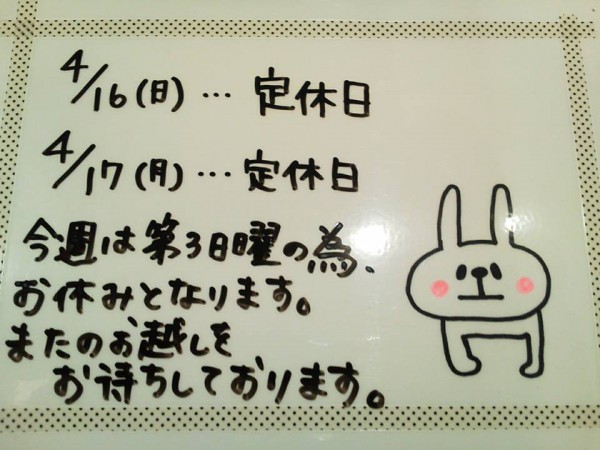 4/16(日)…定休日
4/17(月)…定休日
今週は第3日曜の為、
お休みとなります。
またのお越しを
お待ちしております。